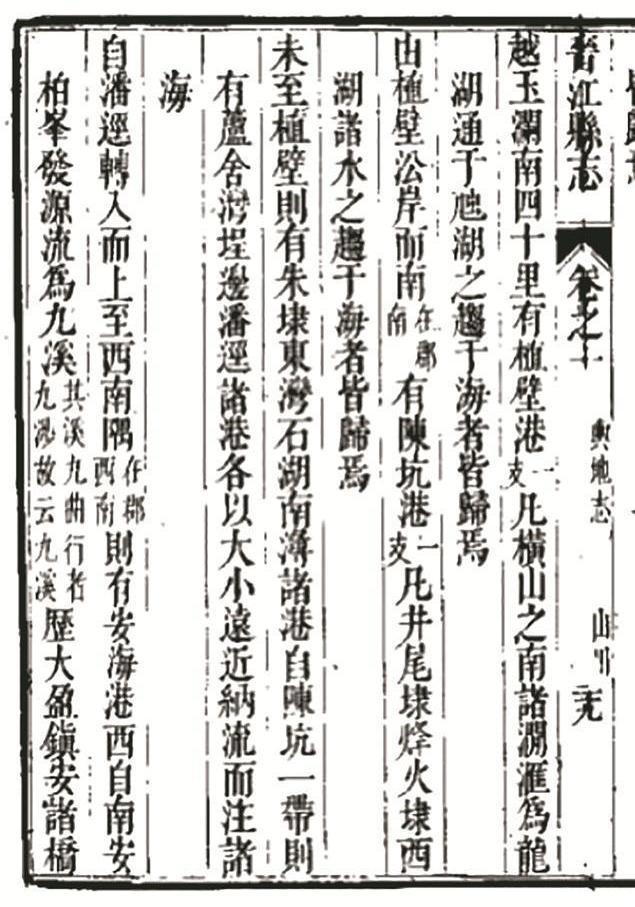 晉江縣志 卷之十 輿地志 山川 三九
越玉瀾南四十里有植壁港一支凡橫山之南諸澗滙爲龍
湖通于虺湖之趨于海者皆歸焉
由植壁公岸而南在郡南有陳坑港一支凡井尾埭烽火埭西
湖諸水之趨于海者皆歸焉
未至植壁則有朱埭東灣石湖南潯諸港自陳坑一帶則
有蘆舍灣埕邊潘逕諸港各以大小遠近納流而注諸
海
自潘逕轉入而上至西南隅在郡西南則有安海港西自南安
柏峯發源流爲九溪其溪九曲行者九渉故云九溪歷大盈鎮安諸橋